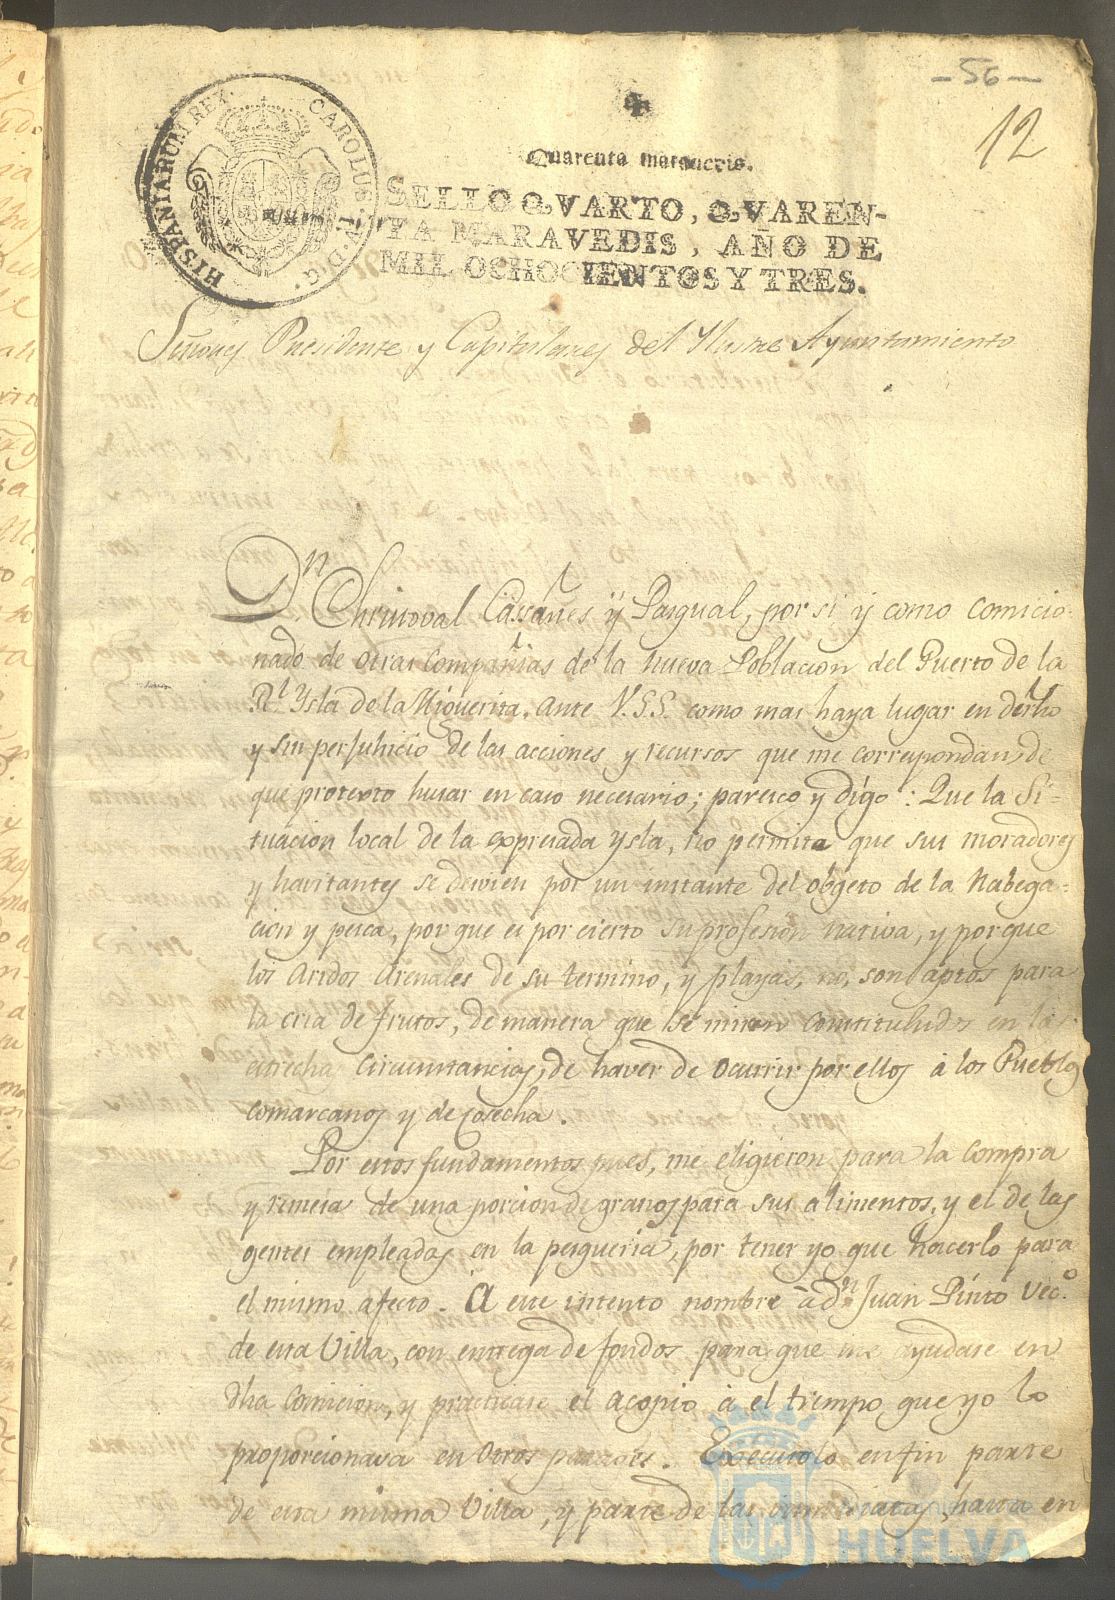 -56-
12
HISPANIARUM REX. CAROLUS IV. D. G.
Quarenta maravedis.
SELLO QVARTO, QVAREN-
TA MARAVEDIS, AÑO DE
MIL OCHOCIENTOS Y TRES.
Señores Presidente y Capitulares del Ylustre Ayuntamiento
Dn Christoval Cassañes ÿ Pasqual, por si ÿ como comicio-
nado de otras compañias de la nueva Poblacion del Puerto de la
Rl Ysla de la Higuerita. Ante V.S.S. como mas haya lugar en derho
y sin perjuhicio de las acciones y recursos que me correspondan, de
que protexto husar en caso necesario; paresco y digo: Que la Si-
tuacion local de la expresada Ysla, no permite que sus moradores
y havitantes se desvien por un instante del objeto de la Nabega-
cion y pesca, por que es por cierto su profesion nativa, y por que
los Aridos Arenales de su termino, y playas, no, son aptos para
la cria de frutos, de manera que se miran constituhidos en las
estrechas circunstancias, de haver de ocurrir por ellos á los Pueblos
comarcanos y de cosecha.
Por estos fundamentos pues, me eligieron para la compra
y remesa de una porcion de granos para sus alimentos, y el de las
gentes empleadas en la pesqueria, por tener yo que hacerlo para
el mismo afecto. A este intento nombre á dn Juan Pinto Veco.
de esta Villa, con entrega de fondos para que me ayudase en
dha comicion, y practicase el acopio á el tiempo que yo lo
proporcionava en otros parages. Executolo en fin parte
de esta misma Villa, y parte de las inmediatas, hasta en
HUELVA